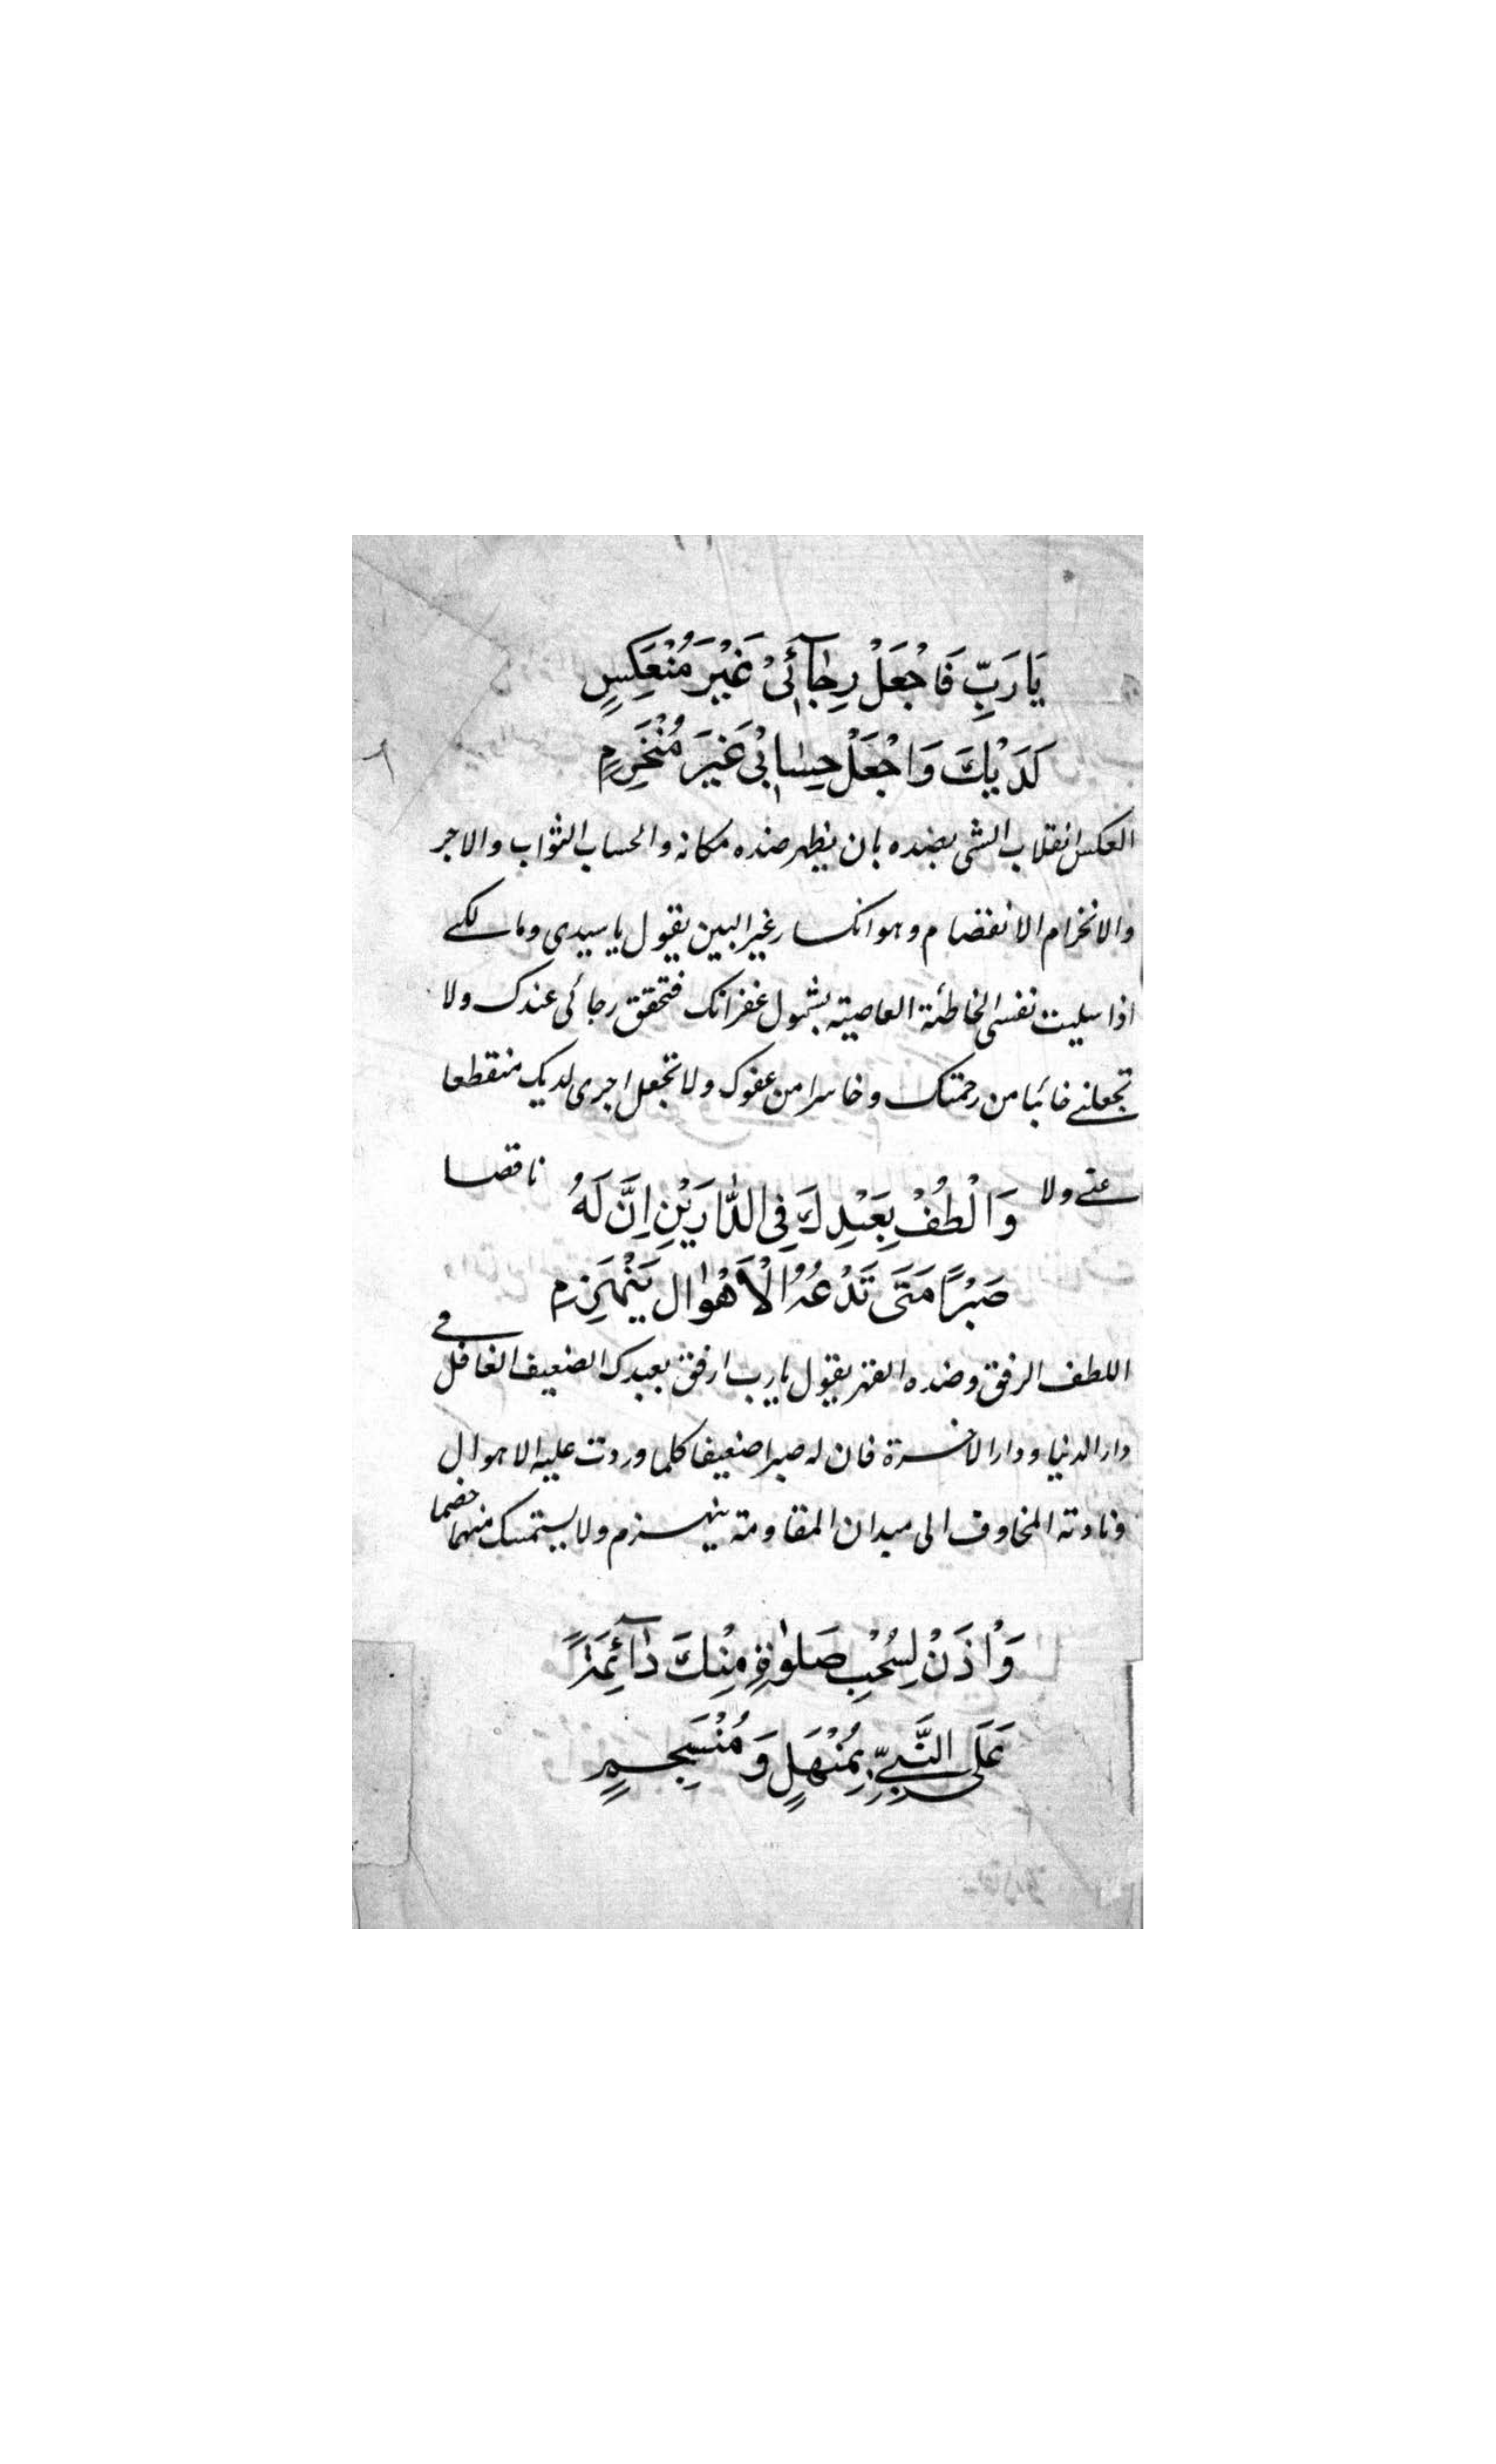 يَارَبِّ فَاجْعَلْ رِجٰآئِىْ غَيْرَ مُنْعَكِسٍ
لَدَيْكَ وَاجْعَلْ حِسٰابِىْ غَيْرَ مُنْخَرِمٍ
العكس انقلاب الشى بضده بان يظهر ضده مكانه والحساب الثواب والاجر
والانخرام الانفضام وهو انكسار غير البين يقول يا سيدى ومالكے
اذا سليت نفسى الخاطئة العاصيته بشمول غفرانك فتحقق رجائى عندك ولا
تجعلنے خائبا من رحمتك وخاسرا من عفوك ولا تجعل اجرى لديك منقطعا
عنے ولا ناقصا
وَالْطُفْ بِعَبْدِكَ فِى الدّٰارَيْنِ اِنَّ لَهُ
صَبْرًا مَتَى تَدْعُهُ الْاَهْوٰال يَنْهَزِمِ
اللطف الرفق وضده القهر يقول يارب ارفق بعبدك الضعيف الغافل فے
دار الدنيا ودار الاخرة فان له صبرا ضعيفا كلما وردت عليه الاهوال
ونادته المخاوف الى ميدان المقاومة ينهزم ولا يستمسك منهما خصما
وَاْذَنْ لِسُحْبِ صَلوٰةٍ مِنْكَ دٰآئِمَةً
عَلَى النَّبِىِّ بِمُنْهَلٍ وَمُنْسَجِمٍ